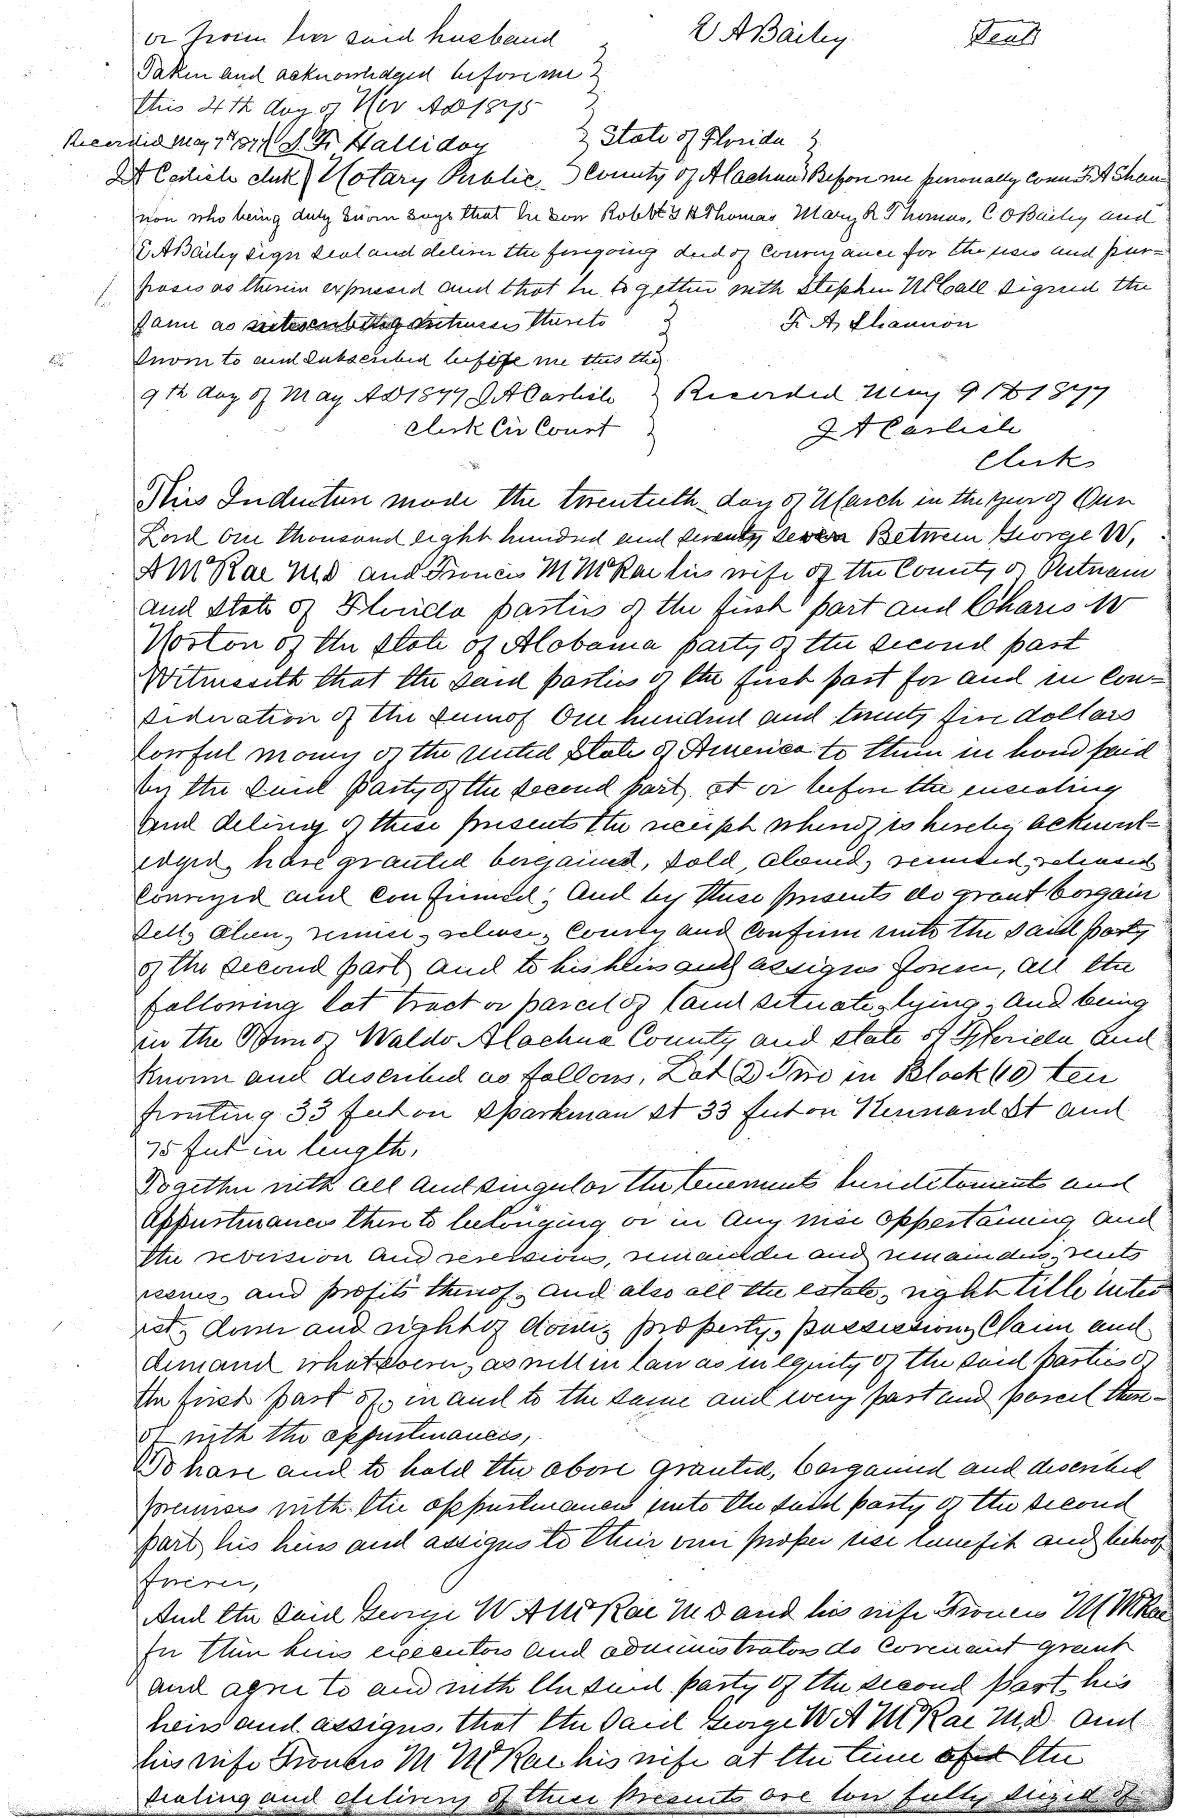 or from her said husband } E A Bailey Seal
Taken and acknowledged before me }
this 4th day of Nov AD 1875 }
Recorded May 7th 1877 S. F. Halliday } State of Florida }
J A Carlisle clerk } Notary Public } County of Alachua } Before me personally come F. A Shan-
non who being duly sworn says that he saw Robbt Y H Thomas Mary R Thomas, C O Bailey and
E A Bailey sign seal and deliver the foregoing deed of conveyance for the uses and pur=
poses as therein expressed and that he together with Stephen McCall signed the
same as subscribing witnesses thereto } F. A. Shannon
Sworn to and subscribed before me this the
9th day of May AD 1877 J A Carlisle } Recorded May 9th 1877
Clerk Cir Court } J A Carlisle
Clerk
This Indenture made the twentieth day of March in the year of Our
Lord one thousand eight hundred and seventy seven Between George W,
A McRae M.D and Francis M McRae his wife of the County of Putnam
and State of Florida parties of the first part and Charis W
Norton of the State of Alabama party of the second part
Witnesseth that the said parties of the first part for and in con=
sideration of the sum of One hundred and twenty five dollars
lawful money of the united State of America to them in hand paid
by the said party of the second part, at or before the ensealing
and delivery of these presents the receipt whereof is hereby acknowl=
edged, have granted bargained, sold, aliened, remised, released
conveyed and confirmed; And by these presents do grant bargain
sell, alien, remise, release, convey and confirm unto the said party
of the second part, and to his heirs and assigns forever, all the
following lot tract or parcel of land situate, lying, and being
in the Town of Waldo Alachua County and state of Florida and
known and described as follows, Lot (2) Two in Block (10) ten
fronting 33 feet on Sparkman St 33 feet on Kennard St and
75 feet in length,
Together with all and singular the tenements hereditaments and
appurtenances thereto belonging or in any wise appertaining and
the reversion and reversions, remainder and remainders, rents
issues, and profits thereof, and also all the estate, right title inter
est, dower and right of dower, property, possession, claim and
demand whatsoever, as well in law as in equity of the said parties of
the first part of, in and to the same and every part and parcel there-
of with the appurtenances,
To have and to hold the above granted, bargained and described
premises with the appurtenances unto the said party of the second
part, his heirs and assigns to their own proper use benefit and behoof
forever,
And the said George W A McRae M D and his wife Francis M McRae
for them heirs executors and administrators do covenant grant
and agree to and with the said party of the second part, his
heirs and assigns, that the said George W A McRae M.D. and
his wife Francis M McRae his wife at the time of the
sealing and delivery of these presents are lawfully seized of